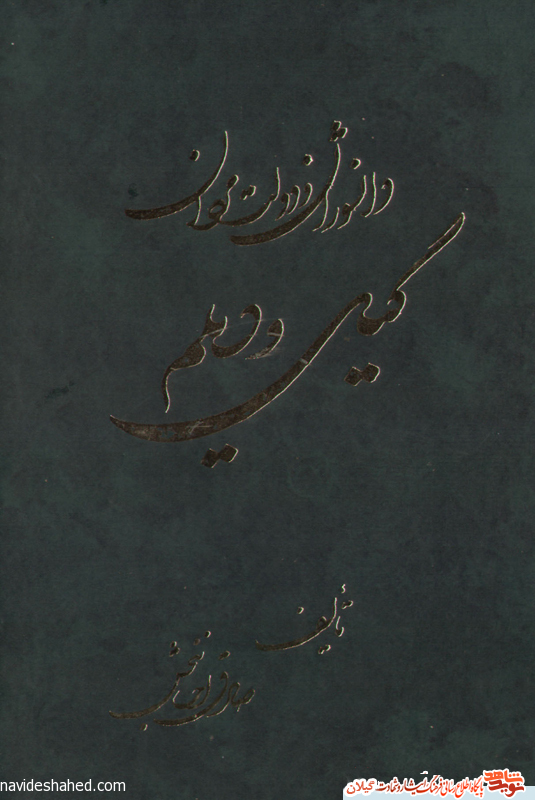 دانشوران و دولت مردان
گیل و دیلم
تألیف
صادق احسانبخش
navideshahed.com
نوید شاهد
پایگاه اطلاع رسانی فرهنگ ایثار و شهادت گیلان